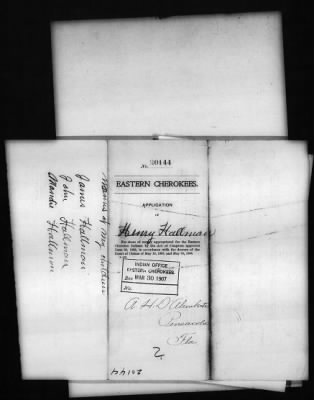 No. 20144
EASTERN CHEROKEES.
APPLICATION
OF
Henry Hallman
For share of money appropriated for the Eastern
Cherokee Indians by the Act of Congress approved
June 30, 1906, in accordance with the decrees of the
Court of Claims of May 18, 1905, and May 28, 1906.
INDIAN OFFICE
EASTERN CHEROKEES.
Rec MAR 30 1907
No.
A. H. D'Alemberte
Pensacola
Fla
2
20144
Names of my children
James Hallman
John Hallman
Mandi Hallman